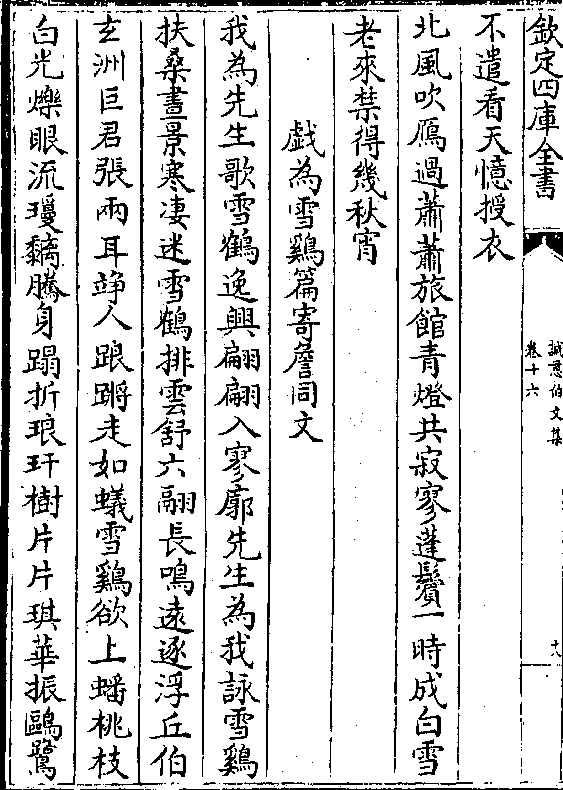 欽定四庫全書
誠意伯文集
卷十六
十八
不遣看天憶授衣
北風吹鴈過蕭蕭旅館青燈共寂寥蓬鬢一時成白雪
老來禁得幾秋宵
戯為雪鷄篇寄詹同文
我為先生歌雪鶴逸興翩翩入寥廓先生為我詠雪鷄
扶桑晝景寒凄迷雪鶴排雲舒六翮長鳴遠逐浮丘伯
玄洲巨君張兩耳竫人踉蹡走如蟻雪鷄欲上蟠桃枝
白光爍眼流瓊黐騰身蹋折琅玕樹片片琪華振鷗鷺